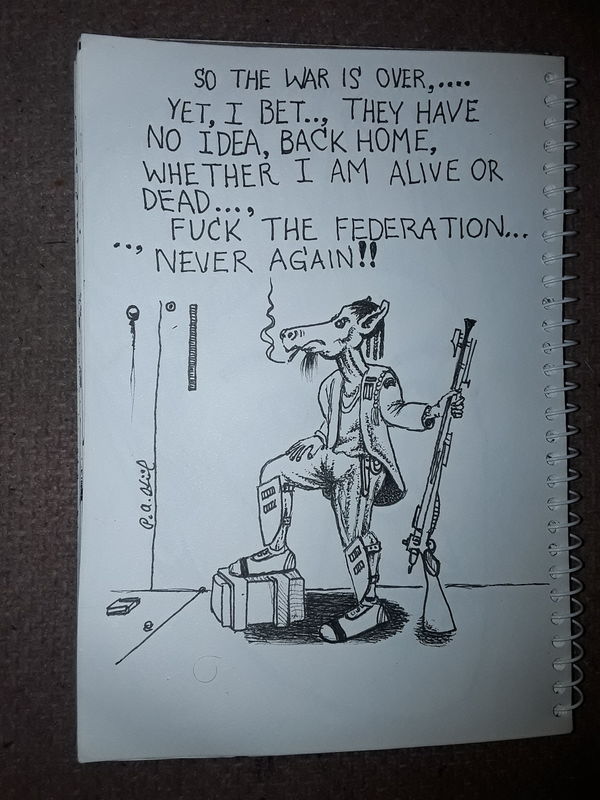 SO THE WAR IS OVER,....
YET, I BET.., THEY HAVE
NO IDEA, BACK HOME,
WHETHER I AM ALIVE OR
DEAD...,
FUCK THE FEDERATION...
.., NEVER AGAIN!!